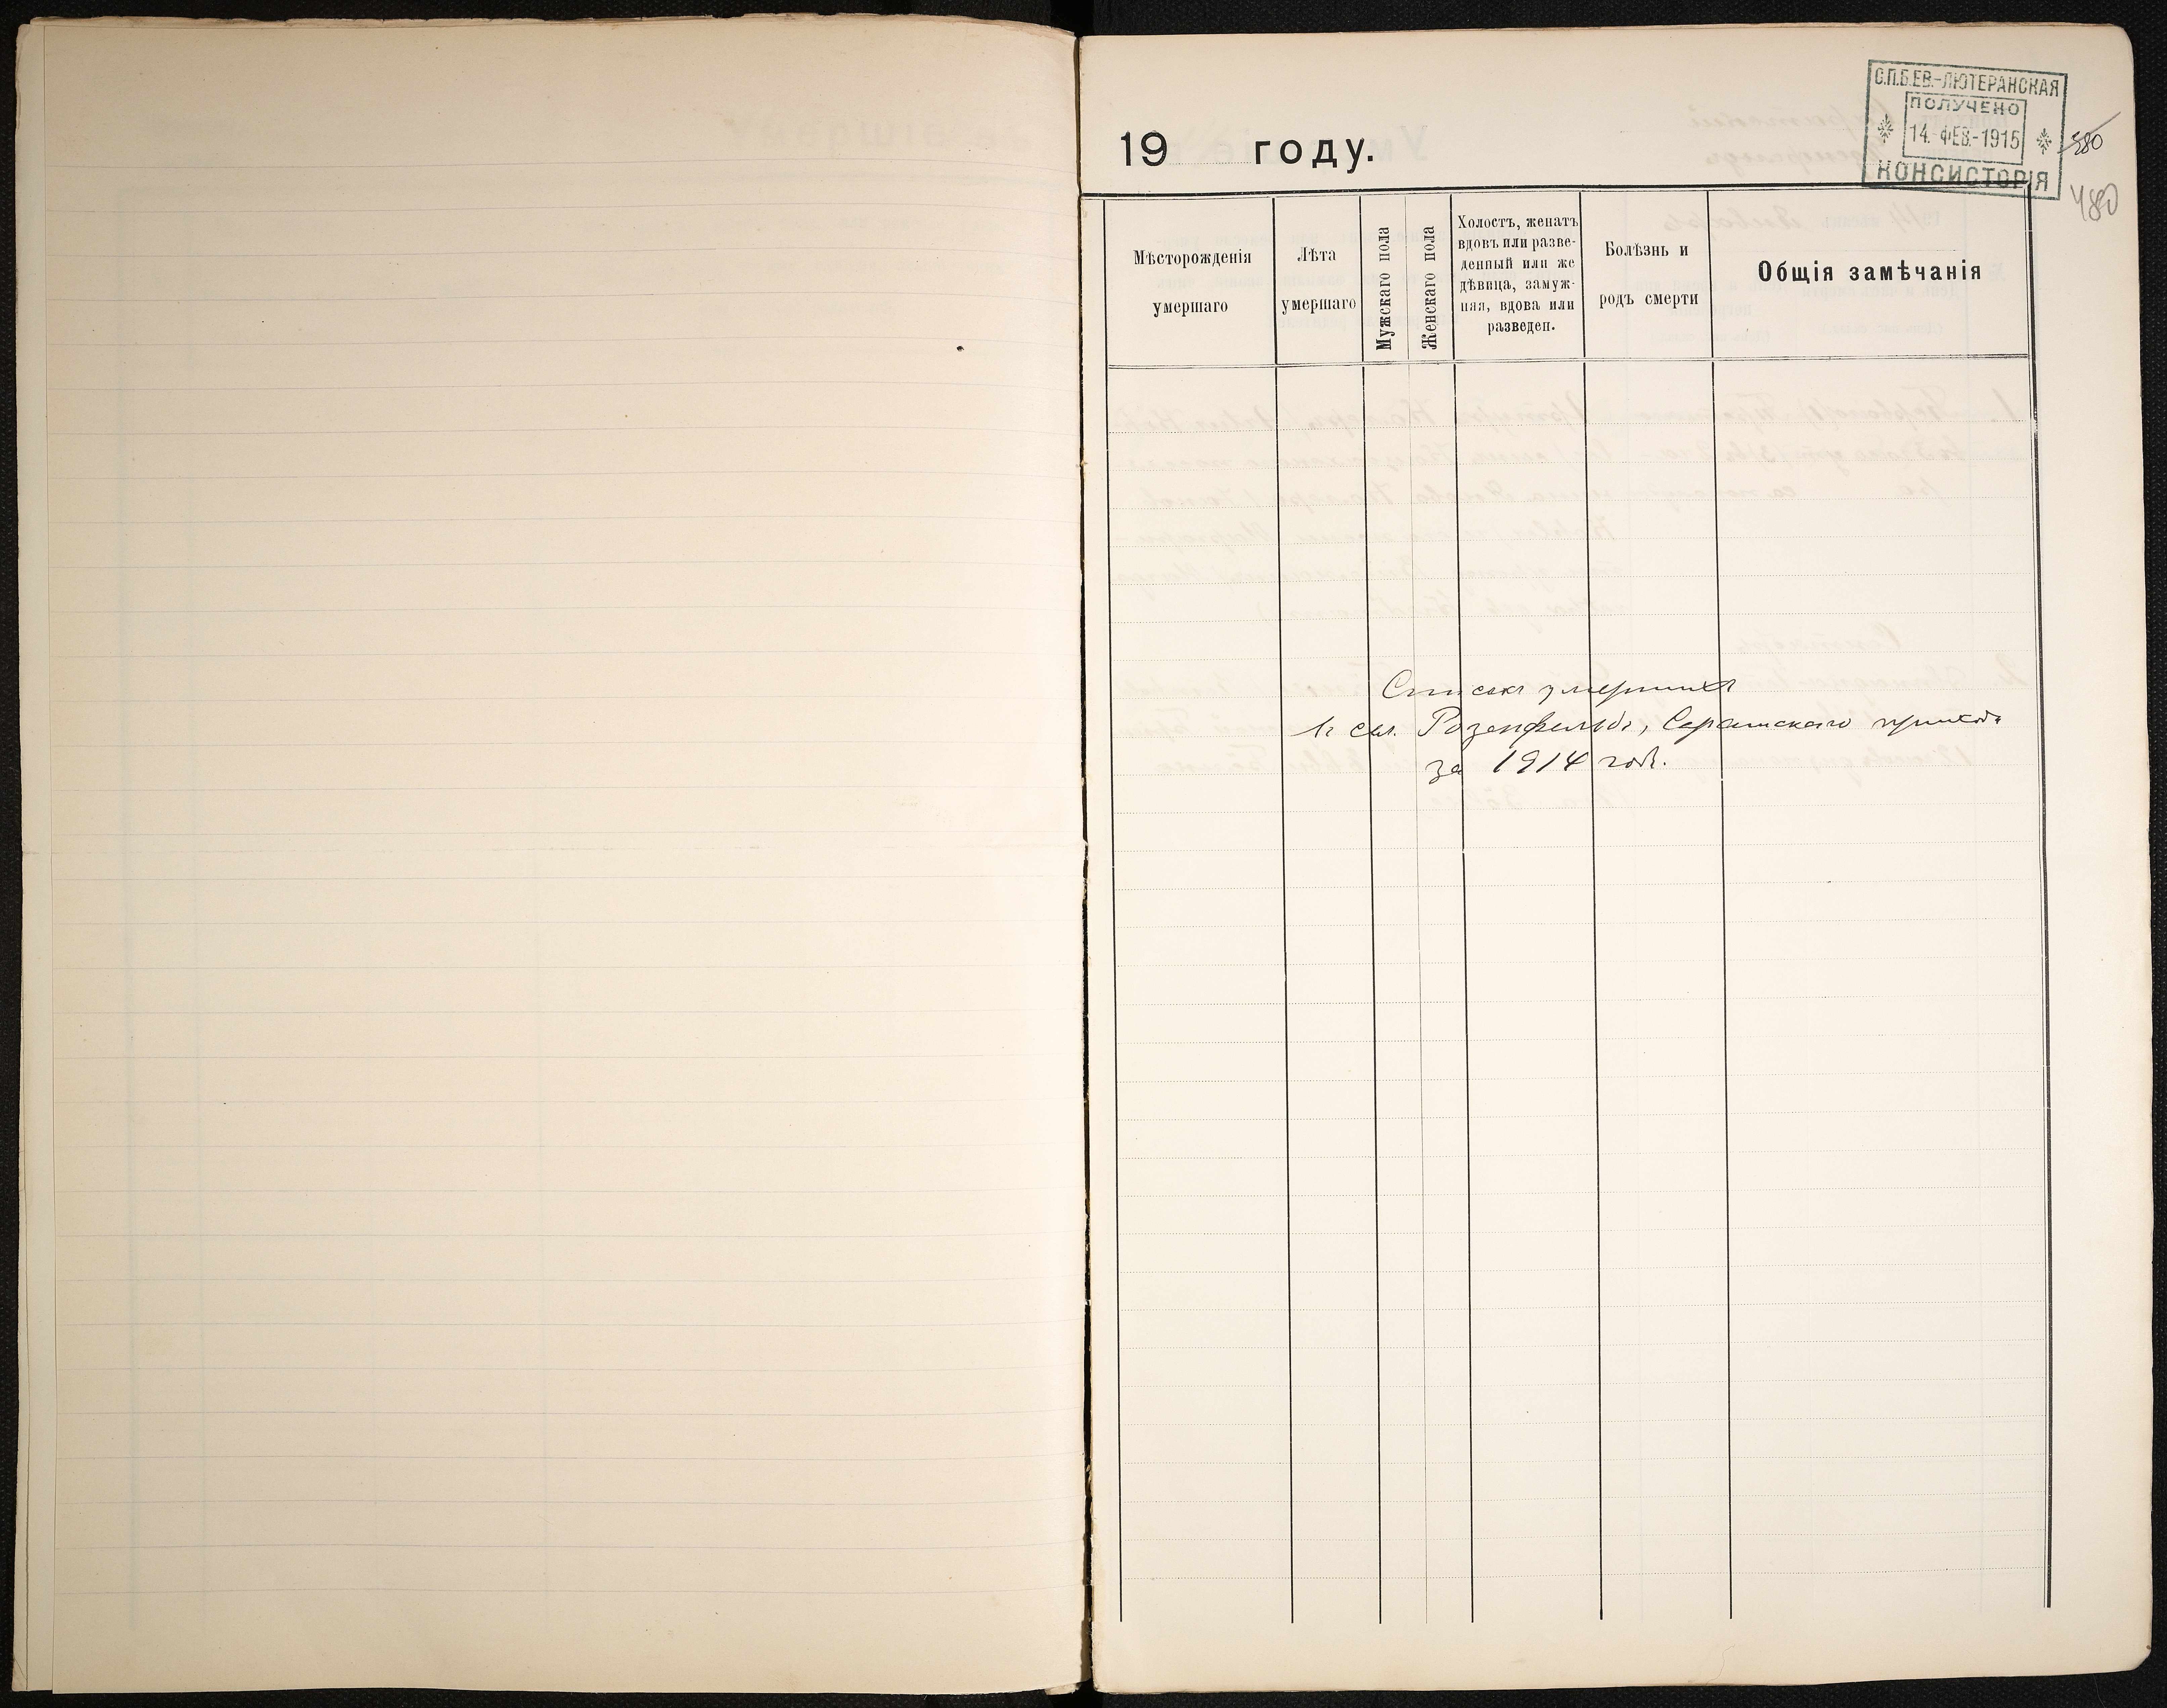 С.П.Б.ЕВ.-ЛЮТЕРАНСКАЯ
ПОЛУЧЕНО
14. ФЕВ.-1915
КОНСИСТОРІЯ
380
480
19 году.
Мѣсторожденія
умершаго
Лѣта
умершаго
Мужскаго пола
Женскаго пола
Холостъ, женатъ
вдовъ или разве-
денный или же
дѣвица, замуж-
няя, вдова или
разведен.
Болѣзнь и
родъ смерти
Общія замѣчанія
Списокъ умершихъ
въ сел. Розенфельдъ, Саратскаго прихода
за 1914 годъ.